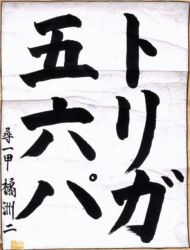 トリガ
五六パ
尋一甲 橘洲二